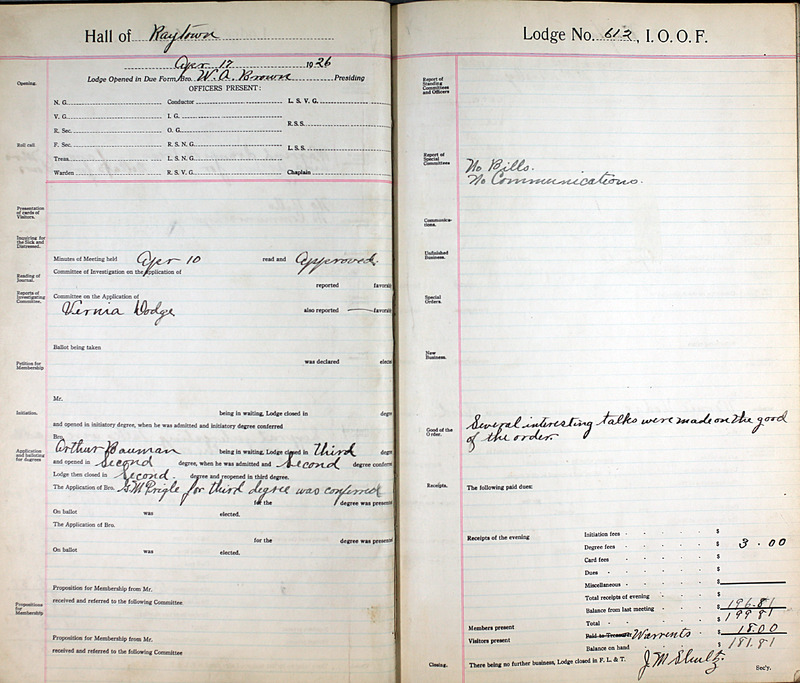 Hall of Raytown
Apr 17 1926
Lodge Opened in Due Form, Bro. W. A. Brown Presiding
Opening.
OFFICERS PRESENT:
N. G. Conductor L. S. V. G.
V. G. I. G.
R. Sec. O. G. R. S. S.
Roll call. F. Sec. R. S. N. G. L. S. S.
Treas. L. S. N. G.
Warden R. S. V. G. Chaplain
Presentation of cards of Visitors.
Inquiring for the Sick and Distressed.
Minutes of Meeting held Apr 10 read and Approved.
Reading of Journal.
Committee of Investigation on the Application of
reported favorab
Reports of Investigating Committee.
Committee on the Application of
Vernia Dodge also reported favorab
Ballot being taken
Petition for Membership
was declared elec
Mr.
Initiation. being in waiting, Lodge closed in degre
and opened in initiatory degree, when he was admitted and initiatory degree conferred
Bro.
Application and balloting for degrees
Arthur Bauman being in waiting, Lodge closed in third degre
and opened in Second degree, when he was admitted and Second degree conferre
Lodge then closed in Second degree and reopened in third degree.
The Application of Bro. G. M. Prigle for third degree was conferred
for the degree was presente
On ballot was elected.
The Application of Bro.
for the degree was presente
On ballot was elected.
Proposition for Membership from Mr.
Propositions for Membership.
received and referred to the following Committee
Proposition for Membership from Mr.
received and referred to the following Committee
Lodge No. 612, I. O. O. F.
Report of Standing Committees and Officers
Report of Special Committees
No Bills.
No Communications.
Communications.
Unfinished Business.
Special Orders.
New Business.
Good of the Order.
Several interesting talks were made on the good
of the order.
Receipts. The following paid dues:
Receipts of the evening
Initiation fees $
Degree fees $ 3.00
Card fees $
Dues $
Miscellaneous $
Total receipts of evening $
Balance from last meeting $ 196.81
Members present Total $ 199.81
Visitors present Paid to Treasurer Warrents $ 18.00
Balance on hand $ 181.81
Closing. There being no further business, Lodge closed in F., L., & T. J M Shultz. Sec'y.